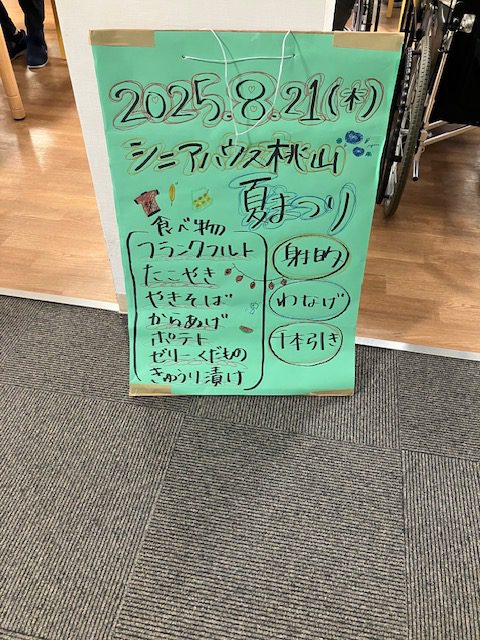 2025.8.21(木)
シニアハウス桃山
夏まつり
食べ物
フランクフルト
たこやき
やきそば
からあげ
ポテト
ゼリーくだもの
きゅうり漬け
射的
わなげ
千本引き